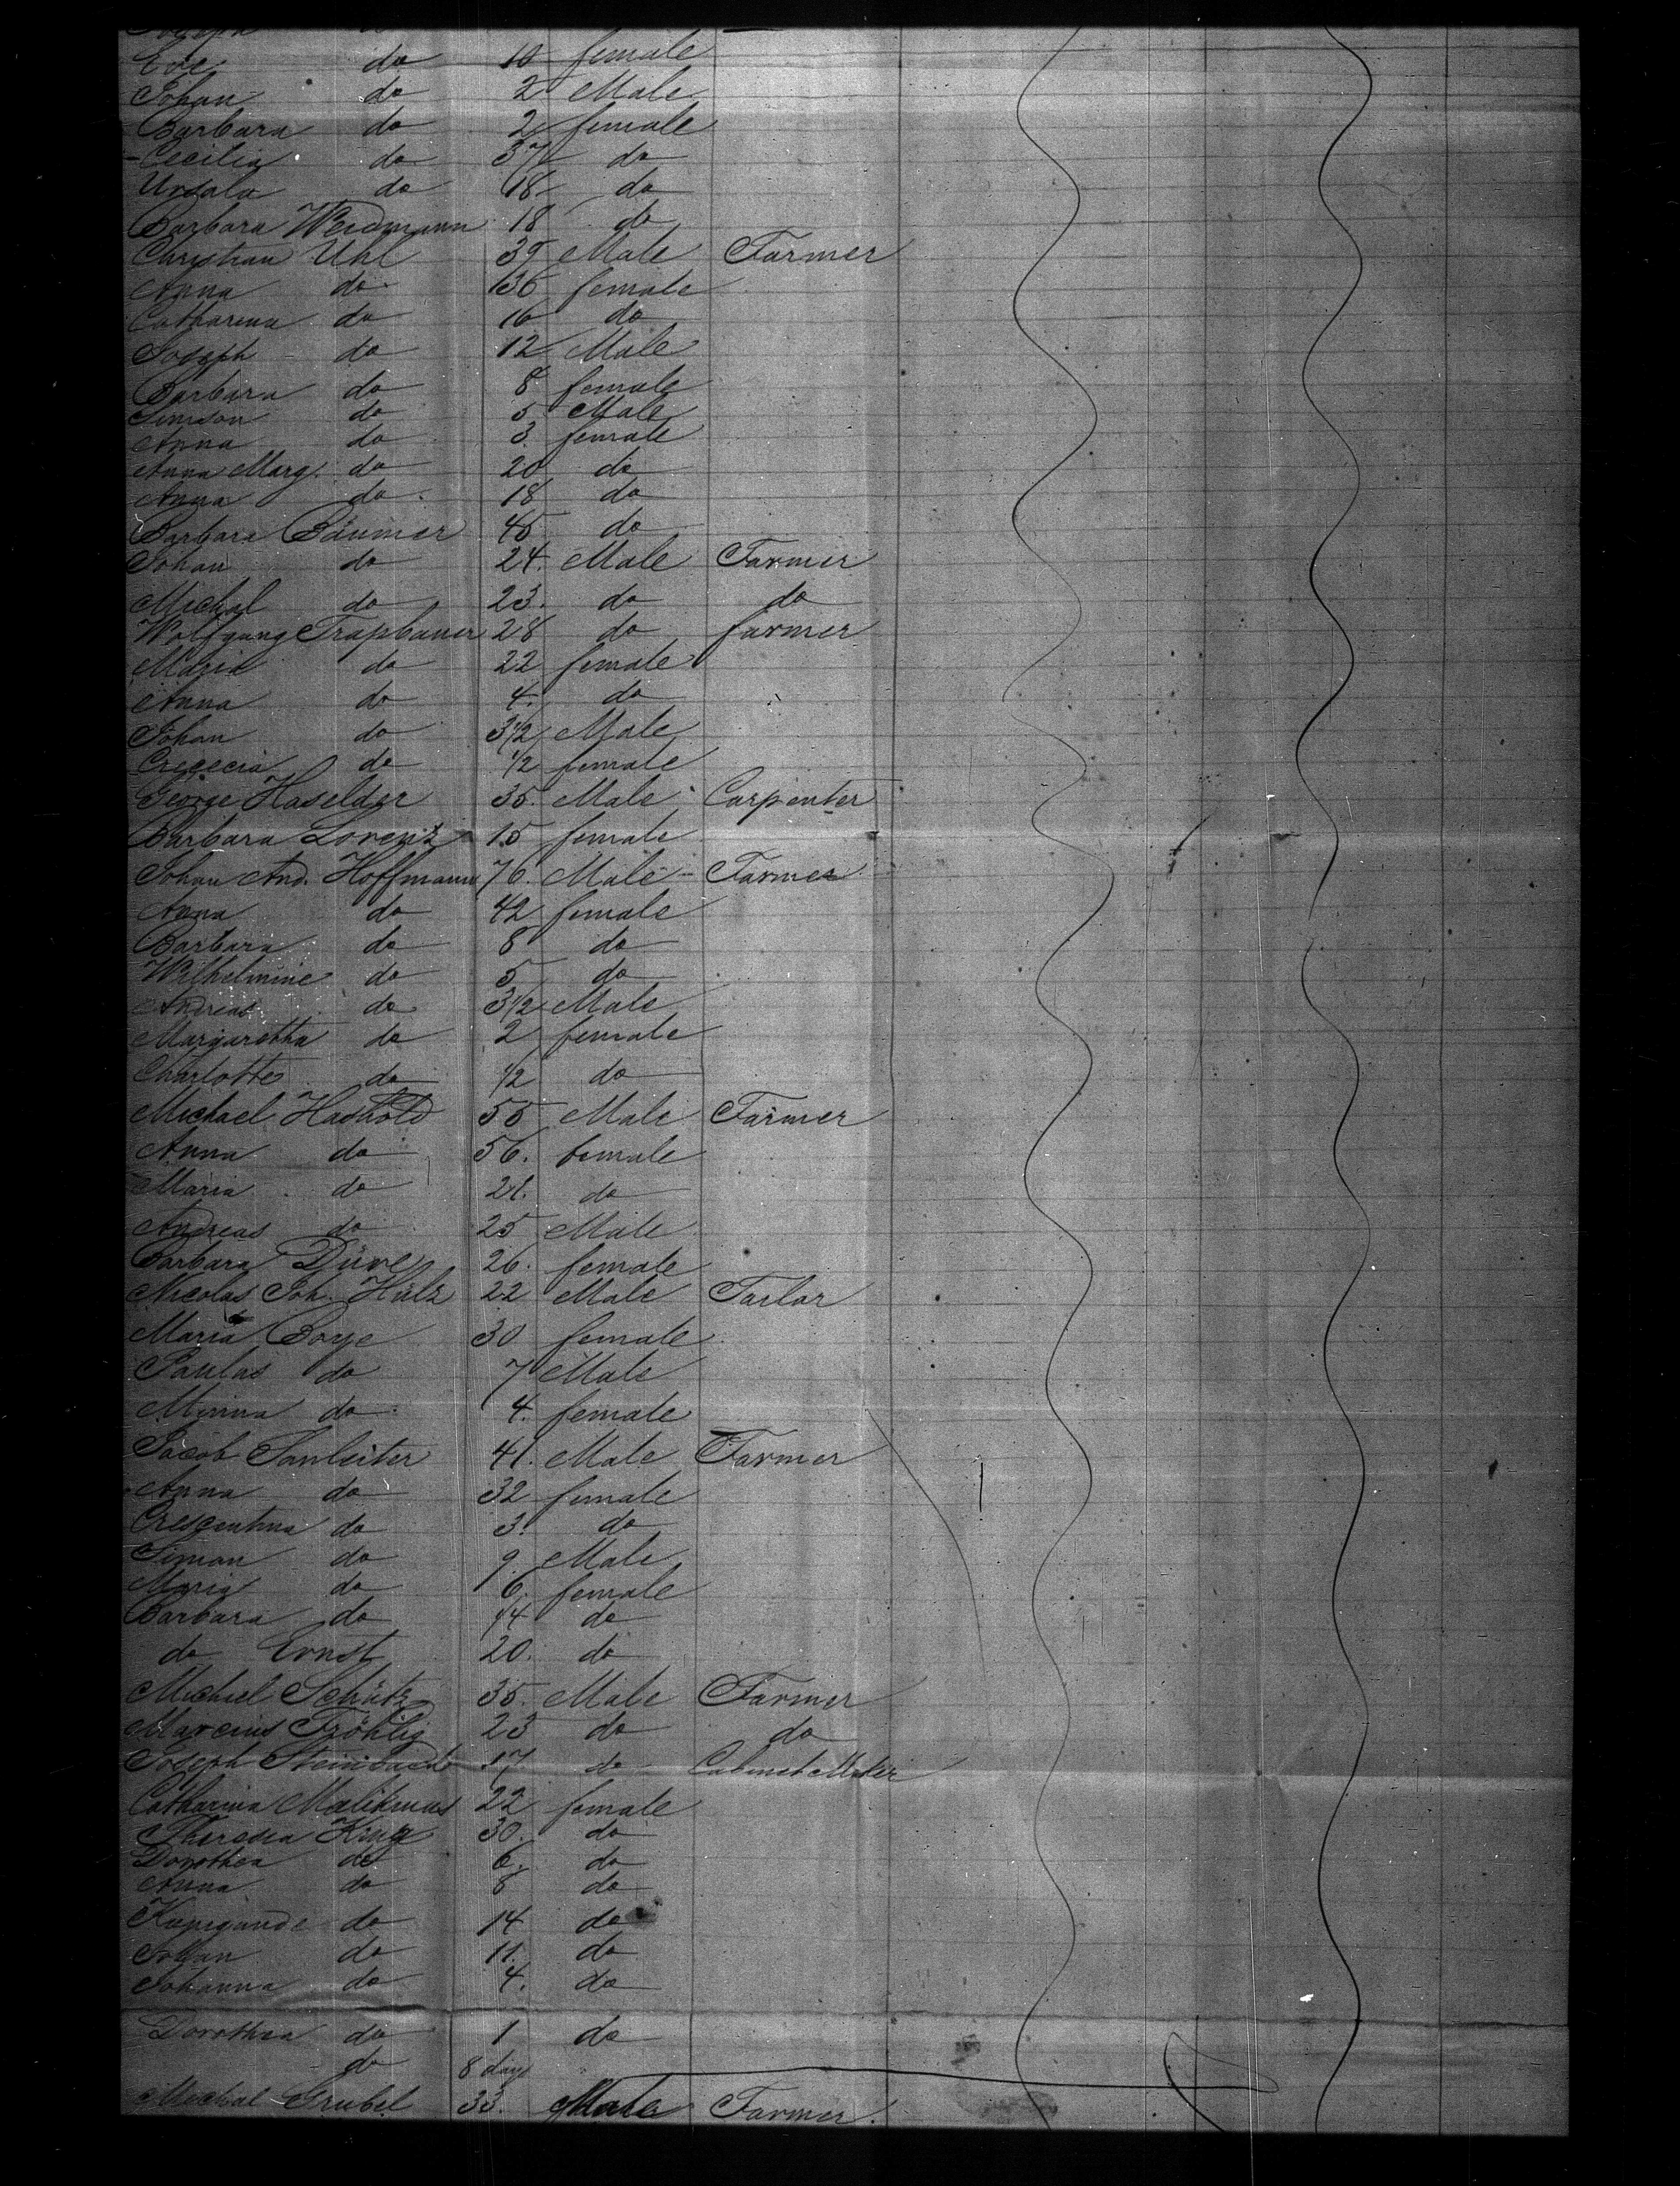 Joseph
Eve do 10 female
Johan do 2 Male
Barbara do 2 female
Cecilia do 37 do
Ursala do 18 do
Barbara Weidmann 18 do
Christian Uhl 39 Male Farmer
Anna do 36 female
Catharina do 16 do
Joseph do 12 Male
Barbara do 8 female
Simson do 5 Male
Anna do 3. female
Anna Marg. do 20 do
Anna do 18 do
Barbara Bäumer 45 do
Johan do 24. Male Farmer
Michal do 23. do do
Wolfgang Trapbauer 28 do farmer
Maria do 22 female
Anna do 4. do
Johan do 3 1/2 Male
do 1/2 female
George Haselder 35. Male Carpenter
Barbara Lorenz 15 female
Johan And. Hoffmann 76. Male Farmer
Anna do 42 female
Barbara do 8 do
Wilhelmine do 5 do
Andreas do 3 1/2 Male
Margaretha do 2 female
Charlotte do 1/2 do
Michael Hadhold 55 Male Farmer
Anna do 56. female
Maria do 21. do
Andreas do 25 Male
Barbara Düve 26. female
Nicolas Joh. Hülz 22 Male Tailor
Maria Boye 30 female
Paulus do 7 Male
Minna do 4. female
Jacob Sanleiter 41. Male Farmer
Anna do 32 female
Crescentina do 3. do
Simon do 9. Male
Maria do 6. female
Barbara do 14 do
do Ernst 20. do
Michael Schütz 35. Male Farmer
Fröhlig 23 do do
Joseph 17. do Cabinet Maker
Catharina 22 female
Theresia Krug 30. do
Dorothea do 6. do
Anna do 8 do
Kunigunde do 14 do
Johan do 11. do
Johanna do 4. do
Dorothea do 1 do
do 8 days
Michal Grubel 33. Male Farmer.